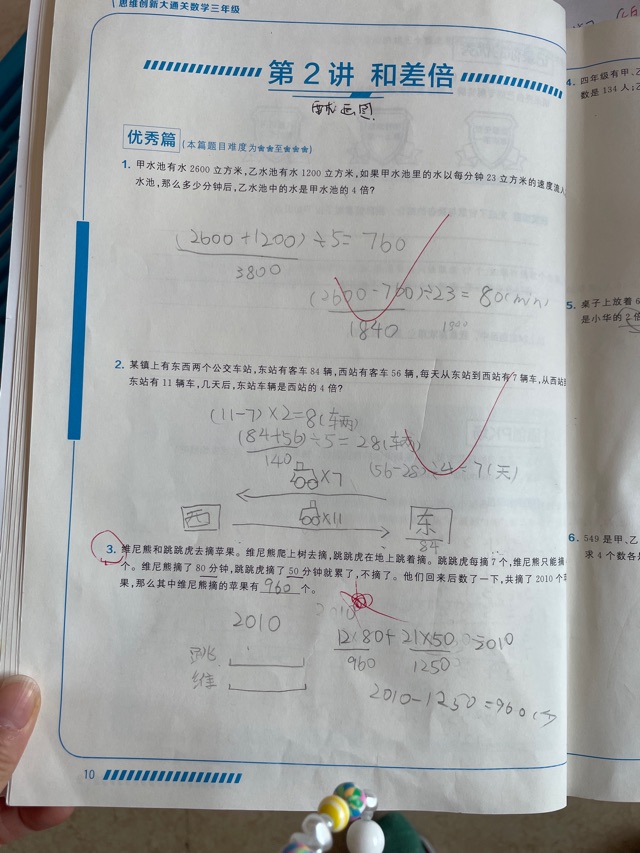 思维创新大通关数学三年级
第 2 讲 和差倍
画图
优秀篇 (本篇题目难度为★★至★★★)
1. 甲水池有水 2600 立方米,乙水池有水 1200 立方米,如果甲水池里的水以每分钟 23 立方米的速度流
水池,那么多少分钟后,乙水池中的水是甲水池的 4 倍?
(2600+1200)÷5=760
3800
(2600-760)÷23=80(min)
1840
2. 某镇上有东西两个公交车站,东站有客车 84 辆,西站有客车 56 辆,每天从东站到西站有 7 辆车,从西站
东站有 11 辆车,几天后,东站车辆是西站的 4 倍?
(11-7)×2=8(车两)
(84+56)÷5=28(车两)
140
(56-28)÷4=7(天)
×7
西
×11
东
84
3. 维尼熊和跳跳虎去摘苹果。维尼熊爬上树去摘,跳跳虎在地上跳着摘。跳跳虎每摘 7 个,维尼熊只能摘
个。维尼熊摘了 80 分钟,跳跳虎摘了 50 分钟就累了,不摘了。他们回来后数了一下,共摘了 2010 个
果,那么其中维尼熊摘的苹果有 960 个。
2010
2010
跳
维
12×80+21×50=2010
960 1250
2010-1250=960(个)
10
4. 四年级有甲、乙
数是 134 人;乙
5. 桌子上放着 6
是小华的 2 倍
6. 549 是甲、乙
求 4 个数各是